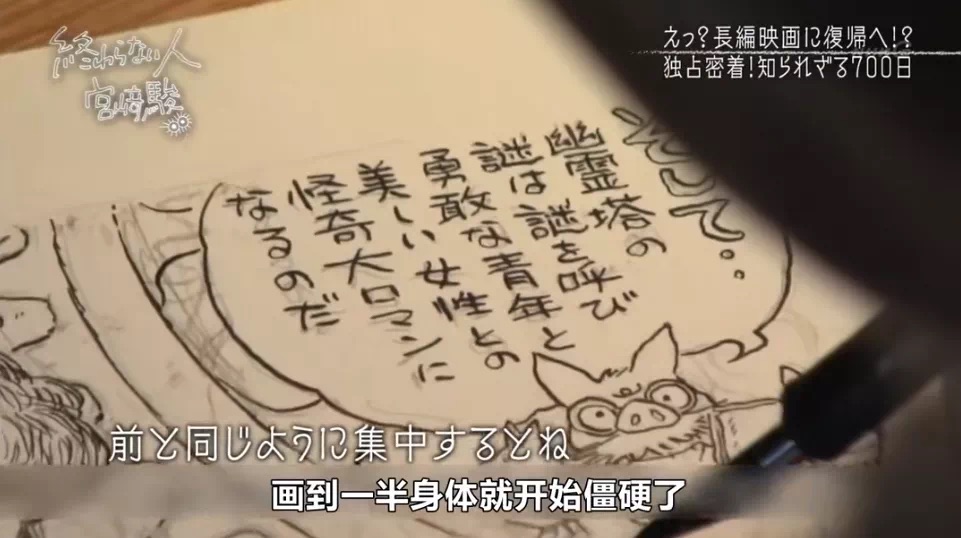 終わらない人
宮﨑駿
えっ?長編映画に復帰へ!?
独占密着!知られざる700日
そして・・・
幽霊塔の
謎は謎を呼び
勇敢な青年と
美しい女性との
怪奇大ロマンに
なるのだ
前と同じように集中するとね
画到一半身体就开始僵硬了